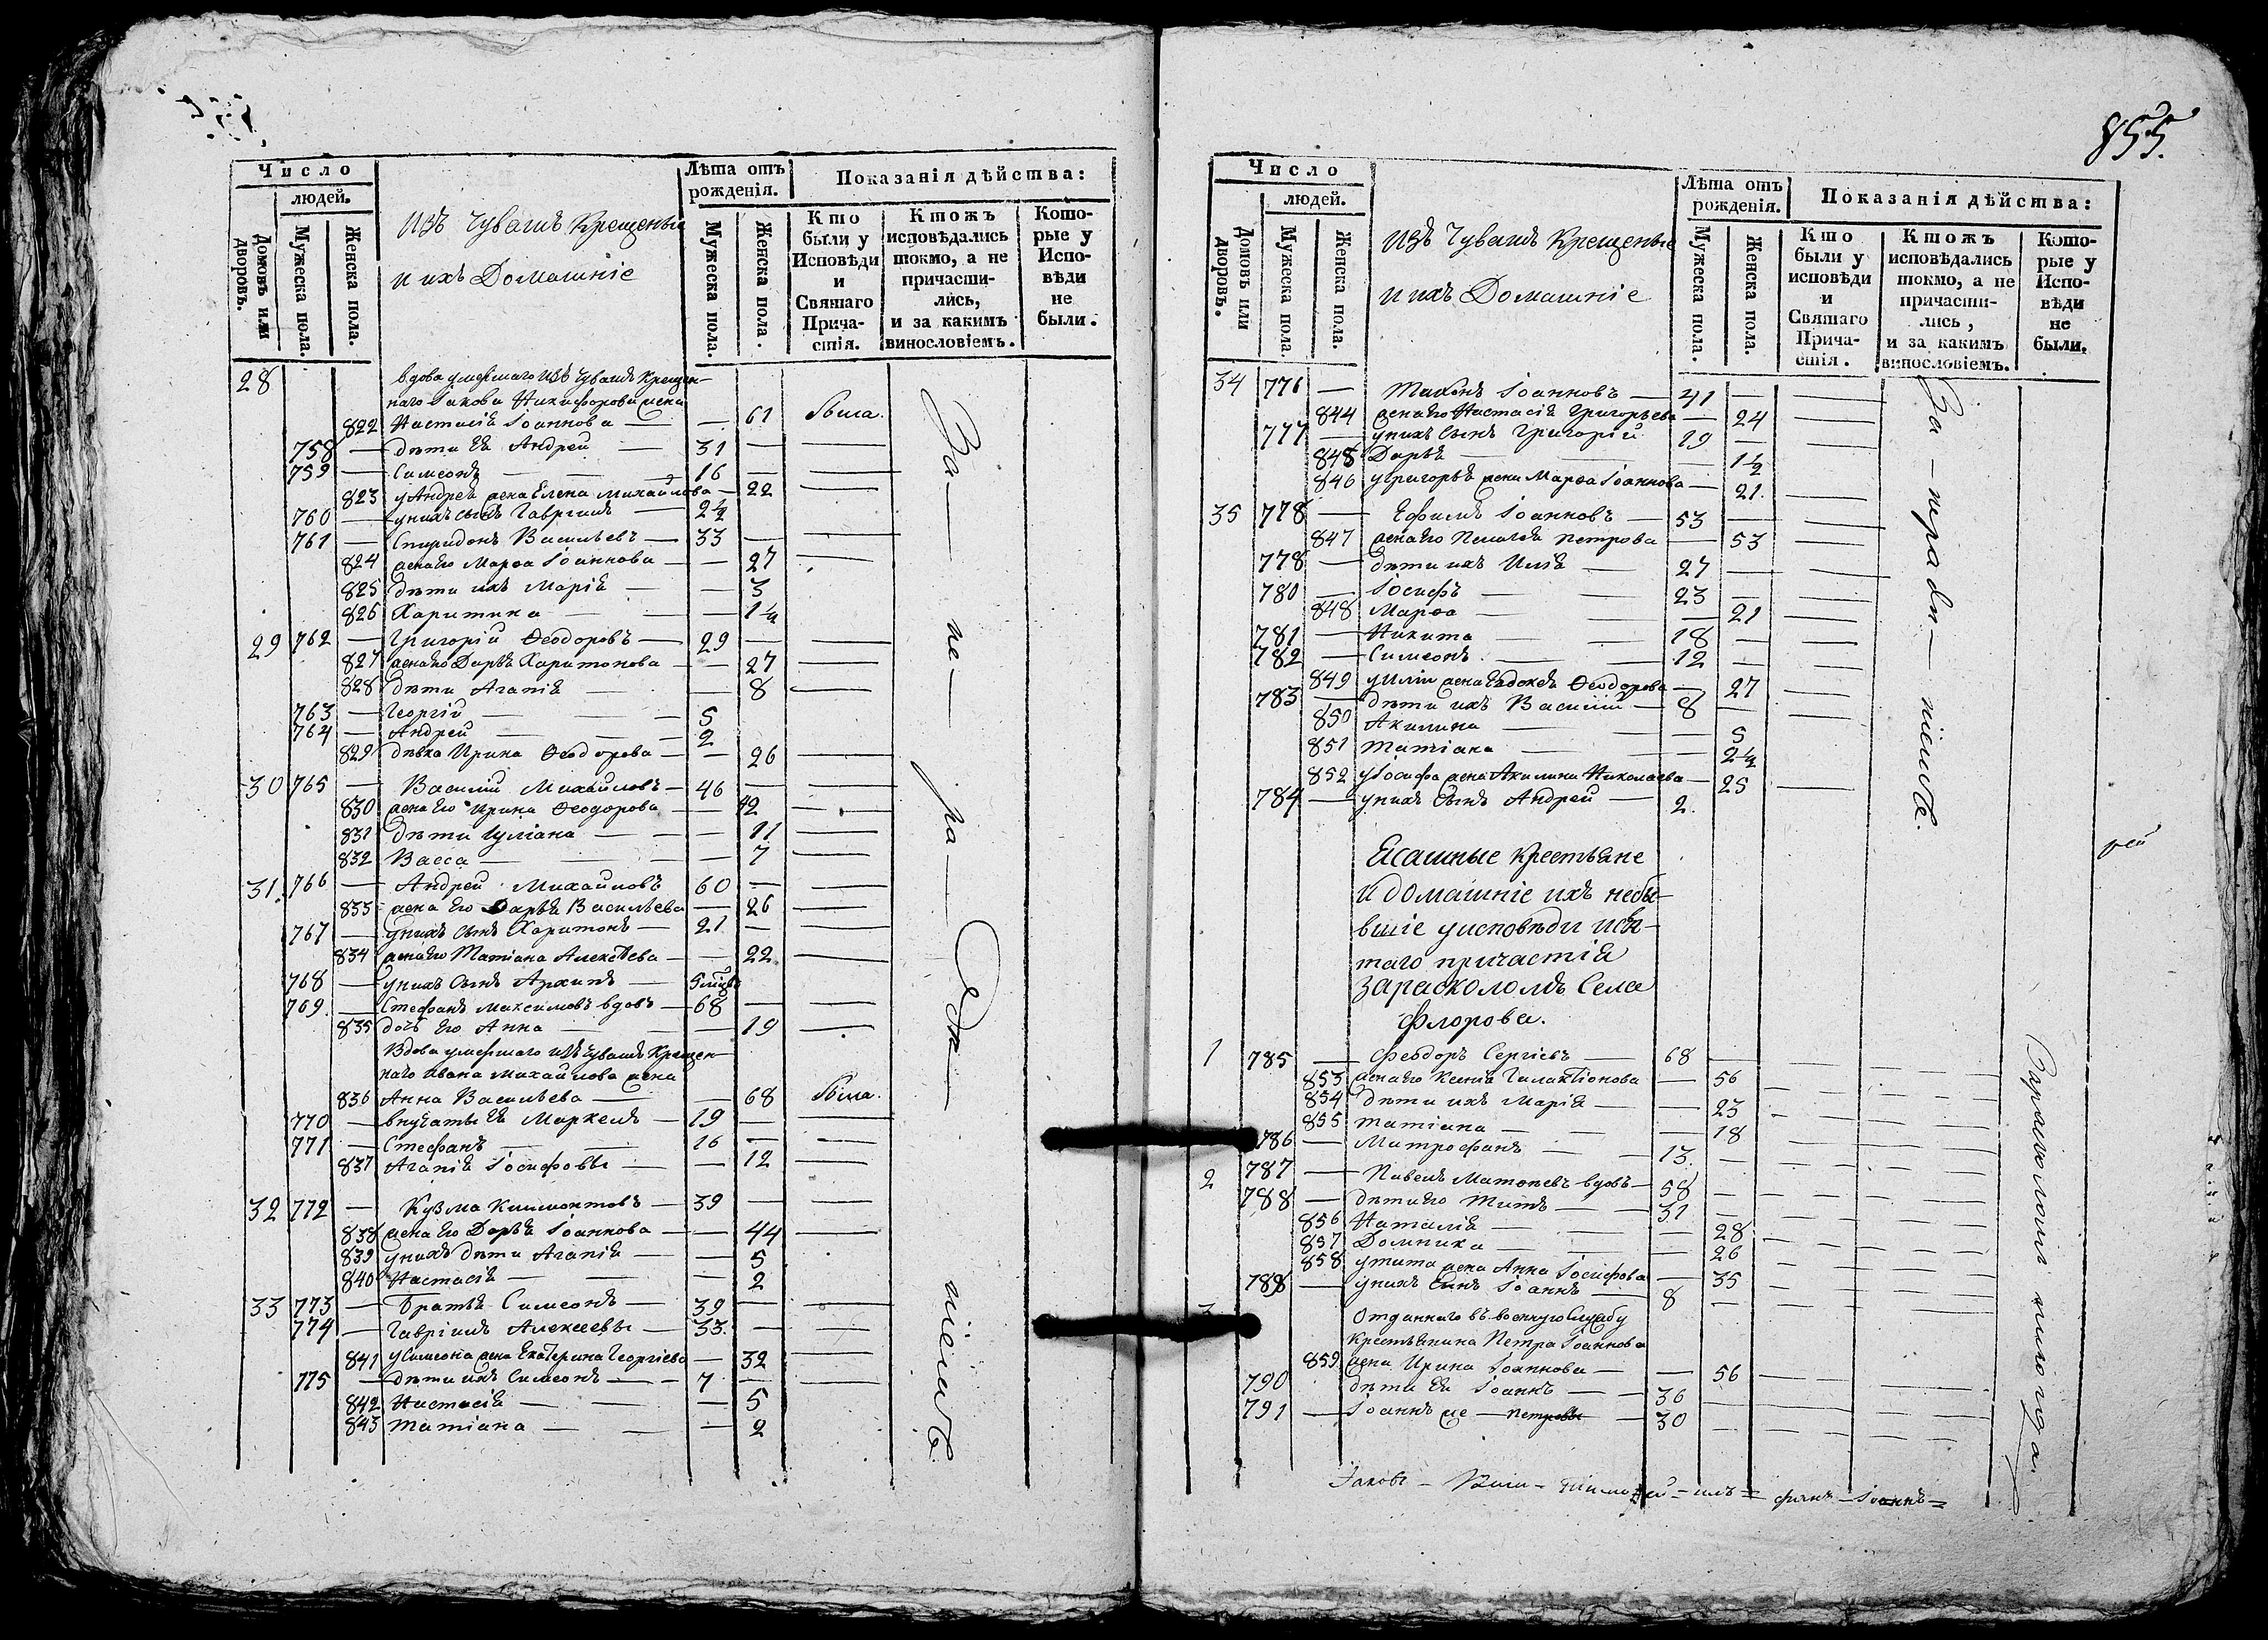 855.
Число
людей.
Домовъ или дворовъ.
Мужеска пола.
Женска пола.
Изъ Чувашъ Крещеные
и ихъ Домашніе
Лѣта отъ рожденія.
Мужеска пола.
Женска пола.
Показанія дѣйства:
Кто были у Исповѣди и Святаго Прича-стія.
Ктожъ исповѣдались токмо, а не причасти-лись, и за какимъ винословіемъ.
Кото-рые у Испо-вѣди не были.
28 вдова умершаго изъ Чувашъ Крещен-
наго Іакова Никифорова жена
822 Настасія Іоаннова — — 61 была.
758 — дѣти Ея Андрей — 31 —
759 — Симеонъ — 16 —
823 у Андрея жена Елена Михайлова — 22
760 — у нихъ сынъ Гавріилъ — 2½
761 — Спиридонъ Васильевъ — 33 —
824 жена его Марѳа Іоаннова — — 27
825 дѣти ихъ Марія — — 3
826 Харитина — — 1½
29 762 — Григорій Ѳеодоровъ — 29 —
827 жена его Дарья Харитонова — — 27
828 дѣти Агапія — — 8
763 — Георгій — — 5
764 — Андрей — — 2
829 дѣвка Ирина Ѳеодорова — — 26
30 765 — Василій Михайловъ — 46 —
830 жена Его Ирина Ѳеодорова — — 42
831 дѣти Іуліана — — 11
832 Васса — — 7
31. 766 — Андрей Михайловъ 60 —
833 жена Его Дарья Васильева — 26
767 — у нихъ сынъ Харитонъ — 21 —
834 жена его Татіана Алексѣева — — 22
768 — у нихъ Сынъ Архипъ —
769. — Стефанъ Максимовъ вдовъ — 68 —
835 дочь Его Анна — — 19
Вдова умершаго изъ Чувашъ Крещен-
наго Ивана Михайлова жена
836 Анна Васильева — — 68 была.
770 — внучаты Ея Маркелъ — 19 —
771 — Стефанъ — 16 —
837 Агапія Іосифовы — — 12
32 772 — Кузма Климонтовъ — 39 —
838 жена Его Дарья Іоаннова — — 44
839 у нихъ дѣти Агапія — — 5
840 Настасія — — 2
33 773 — Братья Симеонъ — 39 —
774 — Гавріилъ Алексеевы — 33. —
841 у Симеона жена Екатерина Георгіева — 32
775 — дѣти ихъ Симеонъ — 7 —
842 Настасія — — 5
843 Татіана — — 2
За — не — ра — дѣ — ніемъ.
Число
людей.
Домовъ или дворовъ.
Мужеска пола.
Женска пола.
Изъ Чувашъ Крещеные
и ихъ Домашніе
Лѣта отъ рожденія.
Мужеска пола.
Женска пола.
Показанія дѣйства:
Кто были у исповѣди и Святаго Прича-стія.
Ктожъ исповѣдались токмо, а не причасти-лись, и за какимъ винословіемъ.
Кото-рые у Испо-вѣди не были.
34 776 — Тихонъ Іоанновъ — 41 —
844 жена его Настасія Григорьева — 24
777 — у нихъ сынъ Григорій 19 —
845 Дарья — — 1½
846 у Григорья жена Марѳа Іоаннова — 21.
35 778 — Ефимъ Іоанновъ — 53 —
847 жена его Пелагея Петрова — 53
778 — дѣти ихъ Илія — 27 —
780 — Іосифъ — 23 —
848 Марѳа — — 21
781 — Никита — 18 —
782 — Симеонъ. — 12 —
849 у Иліи жена Евдокея Ѳеодорова — 27
783 — дѣти ихъ Василій — 8 —
850 Акилина — — 5
851 Татіана — — 2½
852 у Іосифа жена Акилина Николаева — 25
784 — у нихъ Сынъ Андрей — 2.
Ясашные крестьяне
и домашніе ихъ небы-
вшіе у исповѣди и свя-
таго причастія
за расколомъ Села
Флорова.
1 785 — Феодоръ Сергіевъ — 68 —
853 жена его Ксенія Галактіонова — 56
854 дѣти ихъ Марія — — 23
855 Татіана — — 18
786 — Митрофанъ — 13. —
2 787 — Павелъ Матвеевъ вдовъ — 58 —
788 — дѣти его Титъ — 31 —
856 Наталія — — 28
857 Домника — — 26
858 у Тита жена Анна Іосифова — 35
789 — у нихъ Сынъ Іоаннъ — 8 —
3 Отданнаго въ военную Службу
Крестьянина Петра Іоаннова
859 жена Ирина Іоаннова — — 56
790 дѣти Ея Іоаннъ — 36
791 — Іоаннъ же — Петровы — 30
Іаковъ — Іоаннъ